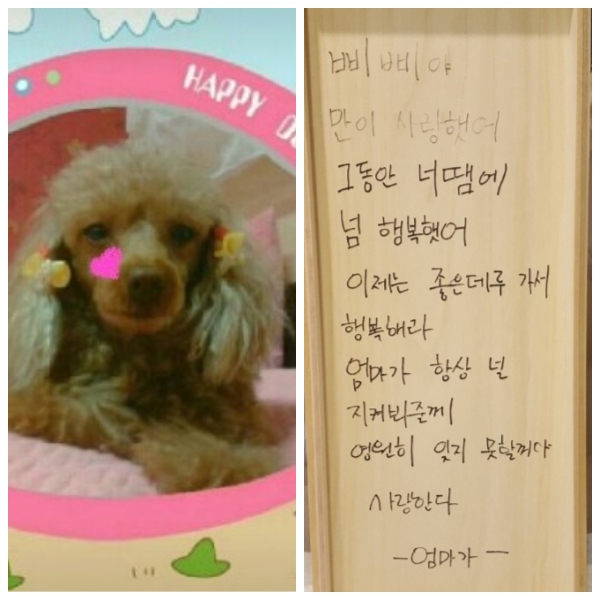 HAPPY
삐삐야
만이 사랑했어
그동안 너땜에
넘 행복했어
이제는 좋은데루 가서
행복해라
엄마가 항상 널
지켜봐준께
영원히 잊지 못할꺼다
사랑한다
-엄마가-